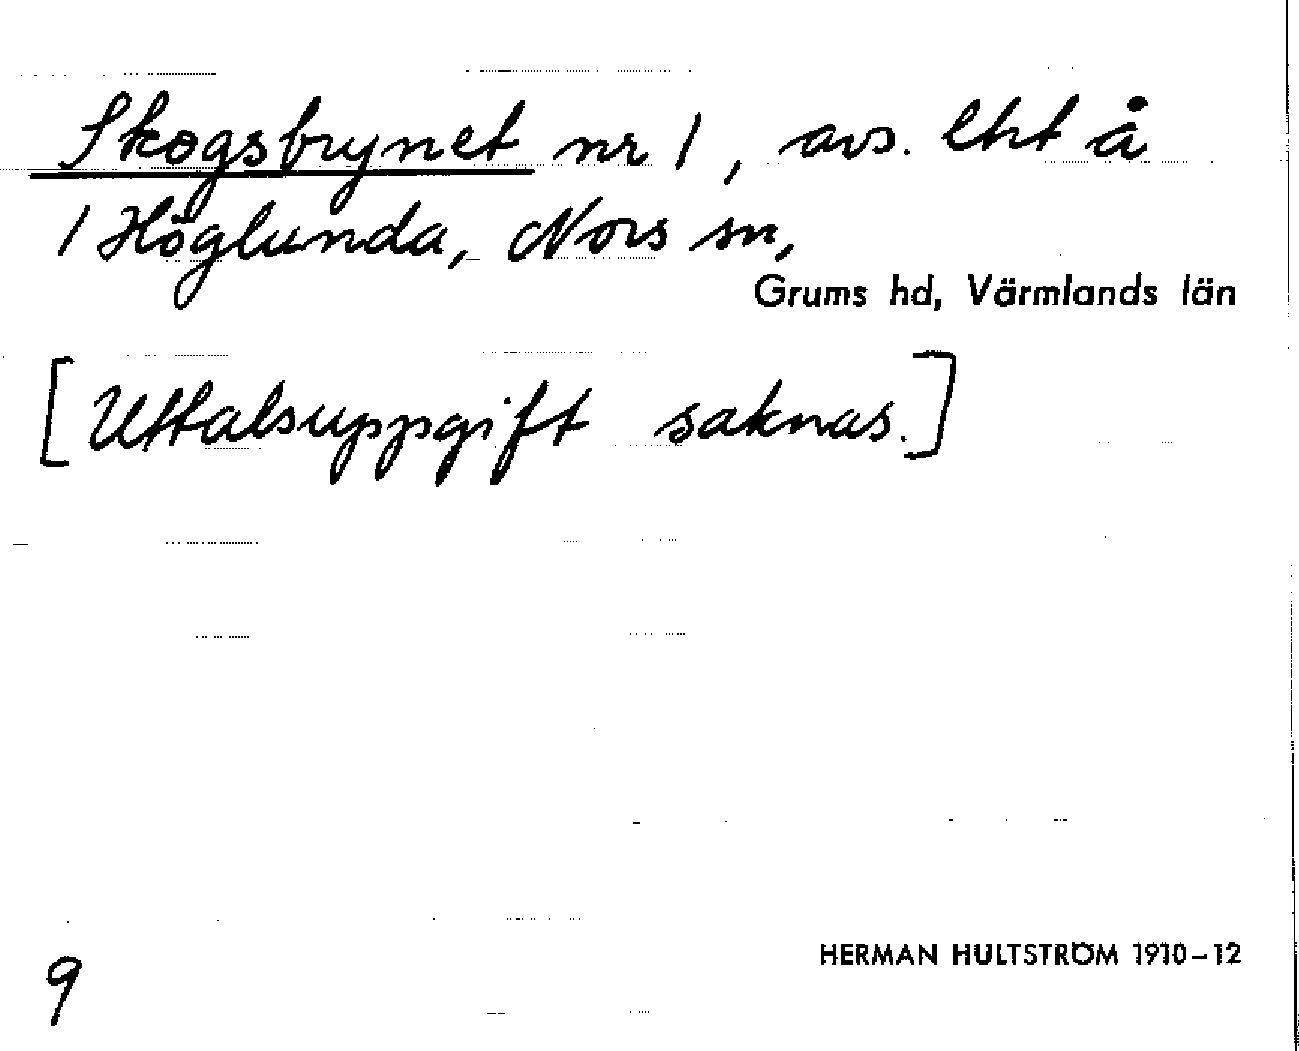 Skogsbrynet nr 1, avs. lht å
1 Höglunda, Nors sn,
Grums hd, Värmlands län
[Uttalsuppgift saknas.]
HERMAN HULTSTRÖM 1910-12
9